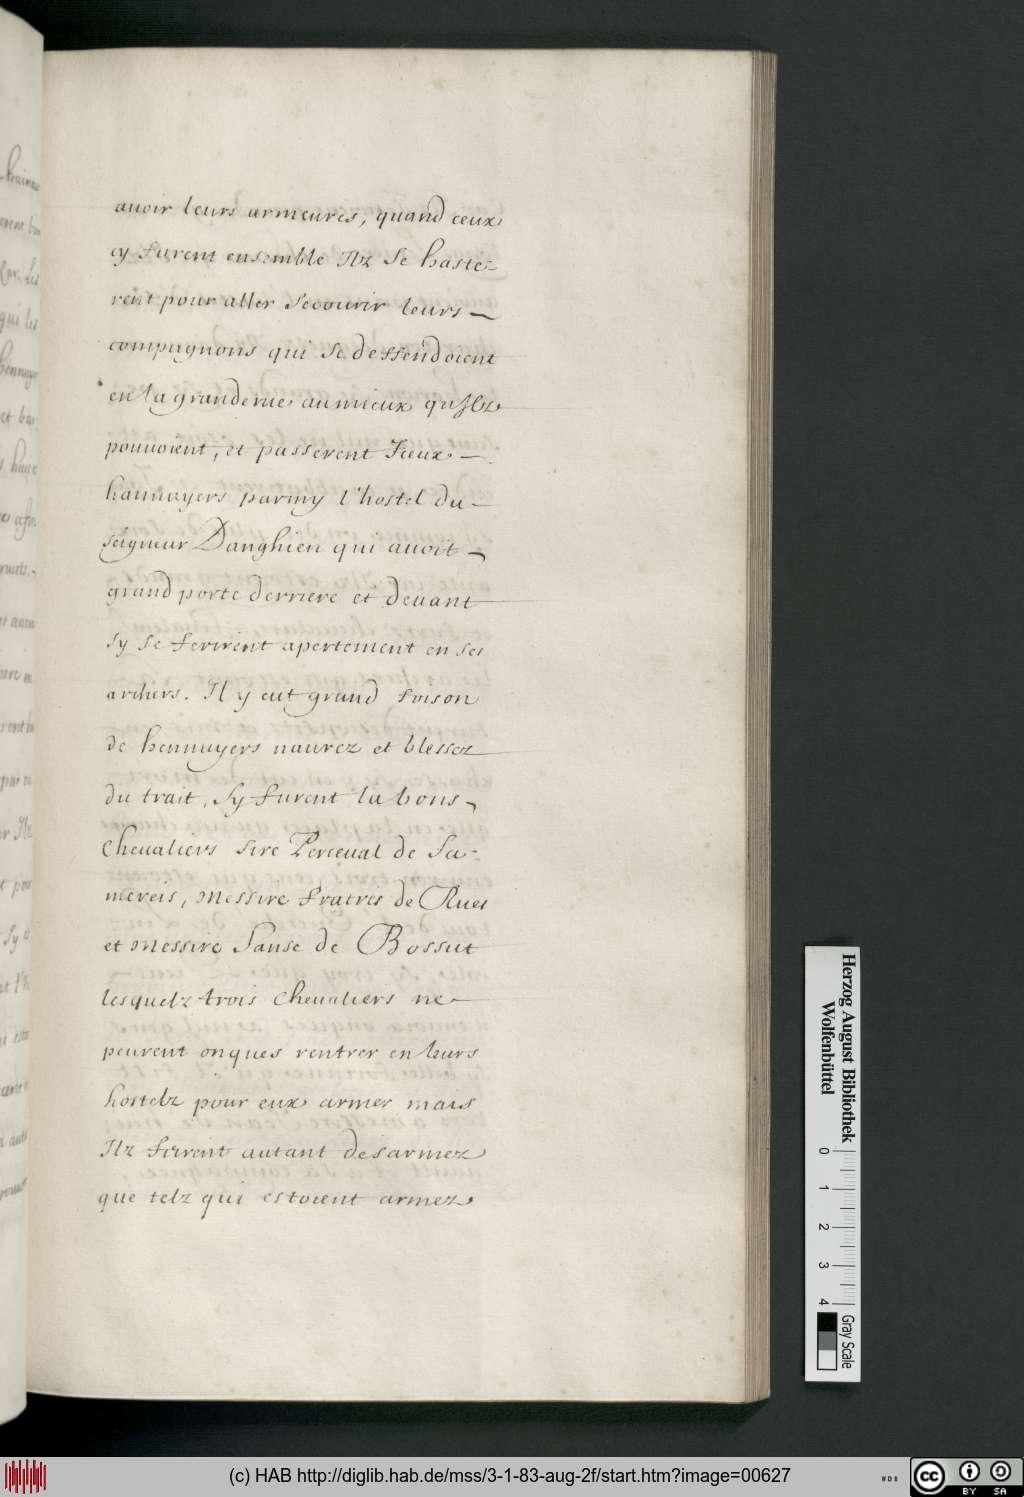 avoir leurs armeures, quand ceux
cy furent ensemble Ilz se haste-
rent pour aller secourir leurs
compagnons qui se deffendoient
en la grande rue au mieux qu'Ilz
pouvoient, et passerent Iceux
hannuyers parmy l'hostel du
seigneur Danghien qui avoit
grand porte derriere et devant
sy se ferirent apertement en ses
archers. Il y eut grand foison
de hennuyers naurez et blessez
du trait, Sy furent la bons
Chevaliers sire Perceval de Sa-
mereis, Messire fratris de Rues
et Messire Sanse de Bossut
lesquelz trois Chevaliers ne
peurent onques rentrer en leurs
hostelz pour eux armer mais
Ilz firent autant desarmez
que telz qui estoient armez
Herzog August Bibliothek
Wolfenbüttel
0 1 2 3 4
Gray Scale
(c) HAB http://diglib.hab.de/mss/3-1-83-aug-2f/start.htm?image=00627
WDB
cc BY SA